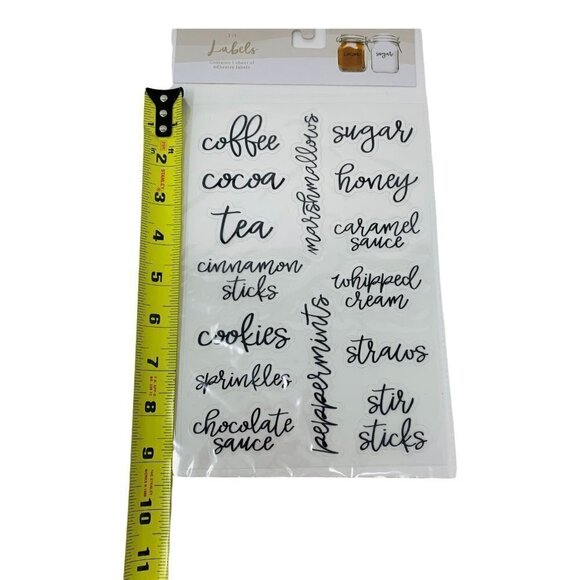 Labels
Contains 1 sheet of
adhesive labels
sugar
coffee
cocoa
tea
cinnamon
sticks
cookies
sprinkles
chocolate
sauce
marshmallows
peppermints
sugar
honey
caramel
sauce
whipped
cream
straws
stir
sticks
1
2
3
4
5
6
7
8
9
10
11